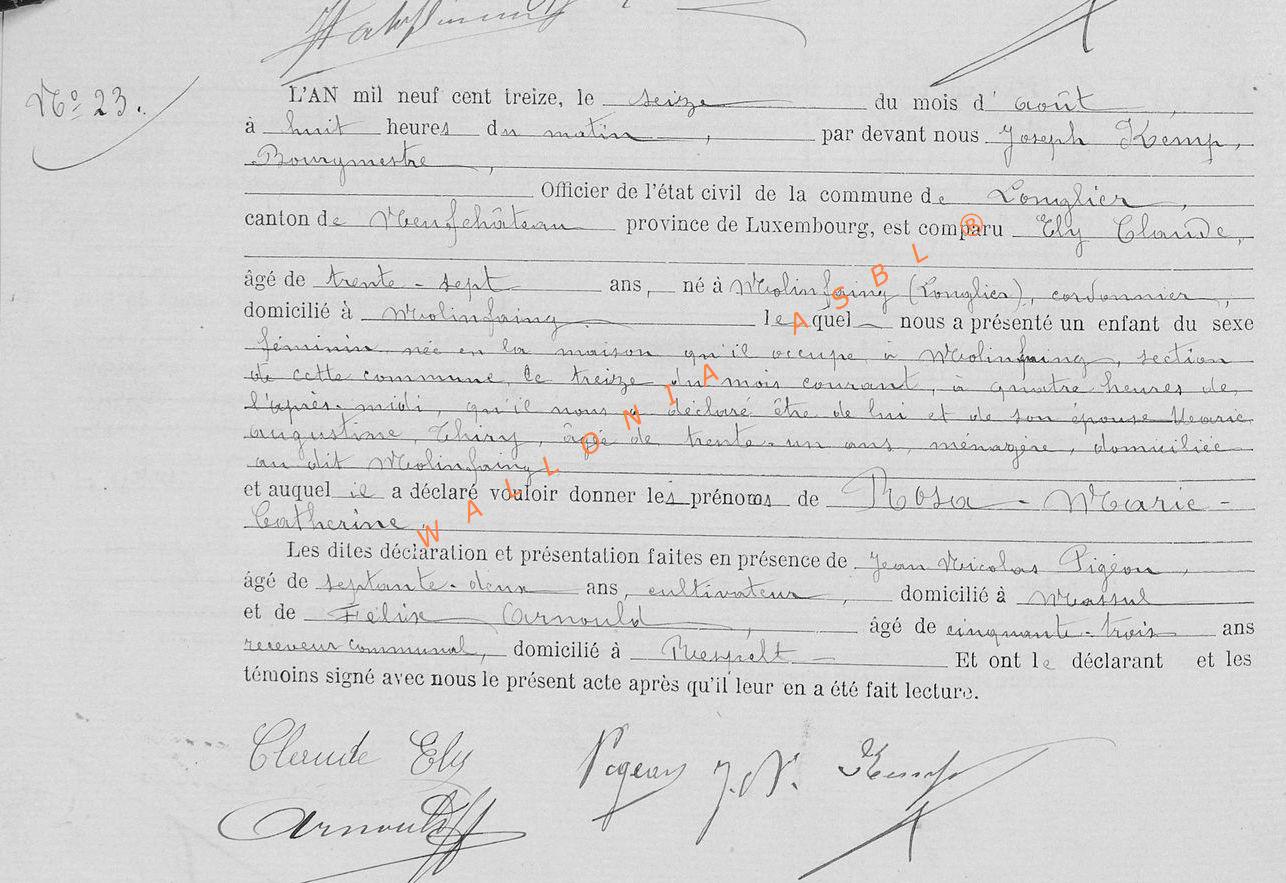 Nº 23.
L'AN mil neuf cent treize, le seize du mois d' août,
à huit heures du matin, par devant nous Joseph Kemp,
Bourgmestre,
Officier de l'état civil de la commune de Longlier,
canton de Neufchâteau province de Luxembourg, est comparu Ely Claude,
âgé de trente-sept ans, né à Molinfaing (Longlier), cordonnier,
domicilié à Molinfaing lequel nous a présenté un enfant du sexe
féminin née en la maison qu'il occupe à Molinfaing, section
de cette commune, le treize du mois courant, à quatre heures de
l'après-midi, qu'il nous a déclaré être de lui et de son épouse Marie
Augustine Thiry, âgée de trente-un ans, ménagère, domiciliée
au dit Molinfaing
et auquel il a déclaré vouloir donner les prénoms de Rosa - Marie -
Catherine.
Les dites déclaration et présentation faites en présence de Jean Nicolas Pigéon,
âgé de septante-deux ans, cultivateur, domicilié à Massul
et de Félix Arnould, âgé de cinquante-trois ans
receveur communal, domicilié à Respelt Et ont le déclarant et les
témoins signé avec nous le présent acte après qu'il leur en a été fait lecture.
Claude Ely Pigeon J. N. Kemp
Arnould
WALLONIA ASBL ®